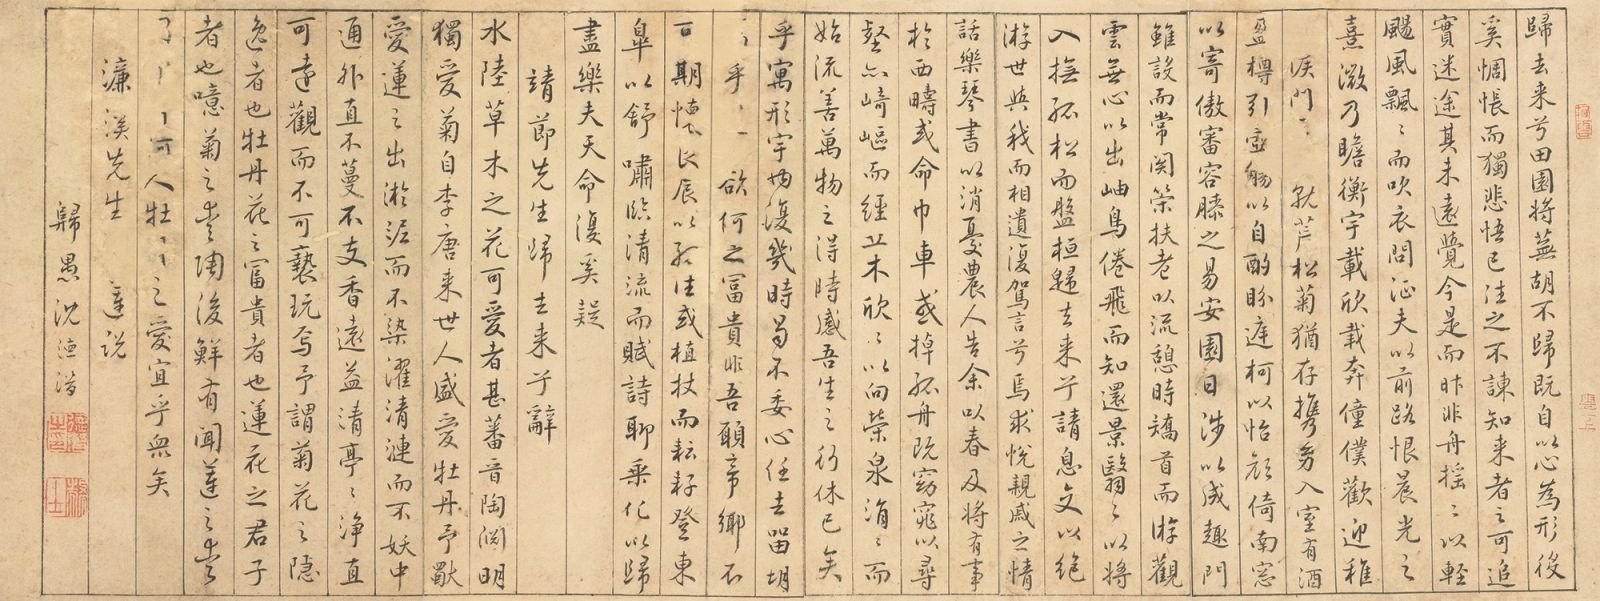 歸去来兮田園將蕪胡不歸既自以心為形役
奚惆悵而獨悲悟已往之不諫知来者之可追
實迷途其未遠覺今是而昨非舟揺〻以輕
颺風飄〻而吹衣問征夫以前路恨晨光之
熹微乃瞻衡宇載欣載奔僮僕歡迎稚
候門 就荒松菊猶存携幼入室有酒
盈樽引壺觴以自酌眄庭柯以怡顔倚南窓
以寄傲審容膝之易安園日涉以成趣門
雖設而常関策扶老以流憩時矯首而游觀
雲無心以出岫鳥倦飛而知還景翳〻以將
入撫孤松而盤桓歸去来兮請息交以絶
游世與我而相遺復駕言兮焉求悅親戚之情
話樂琴書以消憂農人告余以春及將有事
於西疇或命巾車或掉孤舟既窈窕以尋
壑亦崎嶇而經丘木欣〻以向榮泉涓〻而
始流善萬物之得時感吾生之行休已矣
乎寓形宇內復幾時曷不委心任去留胡
乎 欲何之冨貴非吾願帝鄉不
可期懷良辰以孤往或植杖而耘耔登東
皐以舒嘯臨清流而賦詩聊乗化以歸
盡樂夫天命復奚疑
靖節先生歸去来兮辭
水陸草木之花可愛者甚蕃晉陶淵明
獨愛菊自李唐来世人盛愛牡丹予獨
愛蓮之出淤泥而不染濯清漣而不妖中
通外直不蔓不支香遠益清亭〻淨直
可遠觀而不可褻玩焉予謂菊花之隠
逸者也牡丹花之冨貴者也蓮花之君子
者也噫菊之愛陶後鮮有聞蓮之愛
何人牡 之愛宜乎衆矣
濂溪先生 蓮說
歸愚沈德潛